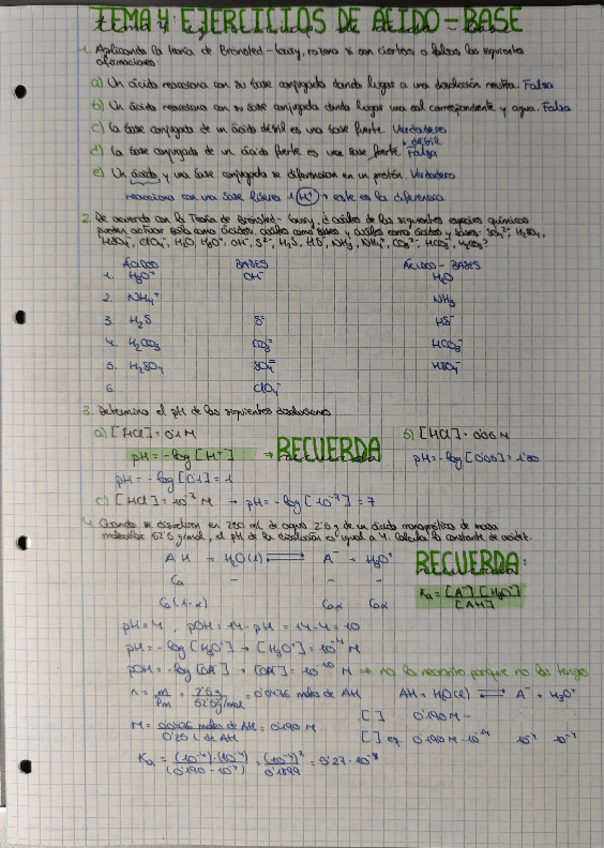 TEMA 4 EJERCICIOS DE ÁCIDO-BASE
1. Aplicando la teoría de Bronsted-Lowry, razona si son ciertas o falsas las siguientes
afirmaciones:
a) Un ácido reacciona con su base conjugada dando lugar a una disolución neutra. Falsa
b) Un ácido reacciona con su base conjugada dando lugar una sal correspondiente y agua. Falsa
c) La base conjugada de un ácido débil es una base fuerte. Verdadero
débil
d) La base conjugada de un ácido fuerte es una base fuerte. Falsa
e) Un ácido y una base conjugada se diferencian en un protón. Verdadero
reacciona con una base libera 1 H⁺ → este es la diferencia
2. De acuerdo con la Teoría de Bronsted-Lowry, ¿cuáles de las siguientes especies químicas
pueden actuar solo como ácidos, cuáles como bases y cuáles como ácidos y bases: SO₄²⁻, H₂SO₄,
HSO₄⁻, ClO₄⁻, H₂O, H₃O⁺, OH⁻, S²⁻, H₂S, HS⁻, NH₃, NH₄⁺, CO₃²⁻, HCO₃⁻, H₂CO₃?
ÁCIDO BASES ÁCIDO-BASES
1. H₃O⁺ OH⁻ H₂O
2. NH₄⁺ NH₃
3. H₂S S⁼ HS⁻
4. H₂CO₃ CO₃⁼ HCO₃⁻
5. H₂SO₄ SO₄⁼ HSO₄⁻
6. ClO₄⁻
3. Determina el pH de las siguientes disoluciones
a) [HCl] = 0'1 M b) [HCl] = 0'05 M
pH = -log [H⁺] → RECUERDA pH = -log [0'05] = 1'30
pH = -log [0'1] = 1
c) [HCl] = 10⁻⁷ M → pH = -log [10⁻⁷] = 7
4. Cuando se disuelven en 250 mL de agua 2'5 g de un ácido monoprótico de masa
molecular 52'5 g/mol, el pH de la disolución es igual a 4. Calcula la constante de acidez.
AH + H₂O(l) ⇌ A⁻ + H₃O⁺ RECUERDA:
Ca - - -
Ca(1-α) Caα Caα
Ka = [A⁻][H₃O⁺] / [AH]
pH = 4, pOH = 14 - pH = 14 - 4 = 10
pH = -log [H₃O⁺] → [H₃O⁺] = 10⁻⁴ M
pOH = -log [OH⁻] → [OH⁻] = 10⁻¹⁰ M → no lo necesito porque no los tengo
n = m / Pm = 2'5 g / 52'5 g/mol = 0'0476 moles de AH AH + H₂O(l) ⇌ A⁻ + H₃O⁺
[ ] 0'190 M -
M = 0'0476 moles de AH / 0'25 L de AH = 0'190 M
[ ] eq. 0'190 M - 10⁻⁴ 10⁻⁴ 10⁻⁴
Ka = (10⁻⁴)·(10⁻⁴) / (0'190 - 10⁻⁴) = (10⁻⁴)² / 0'1899 = 5'27·10⁻⁸